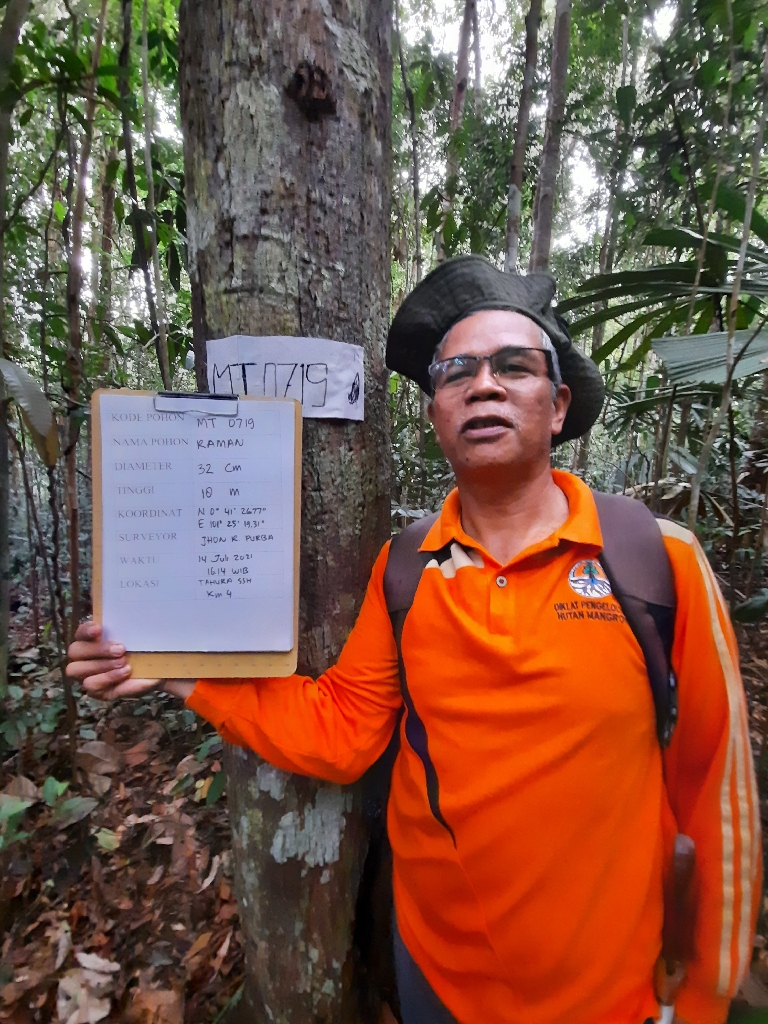 MT 0719
KODE POHON MT 0719
NAMA POHON RAMAN
DIAMETER 32 cm
TINGGI 10 m
KOORDINAT N 0° 41' 26.77"
E 101° 25' 19.31"
SURVEYOR JHON R PURBA
WAKTU 14 Juli 2021
16:14 WIB
LOKASI TAHURA SSH
Km 4
DIKLAT PENGELO
HUTAN MANGRO